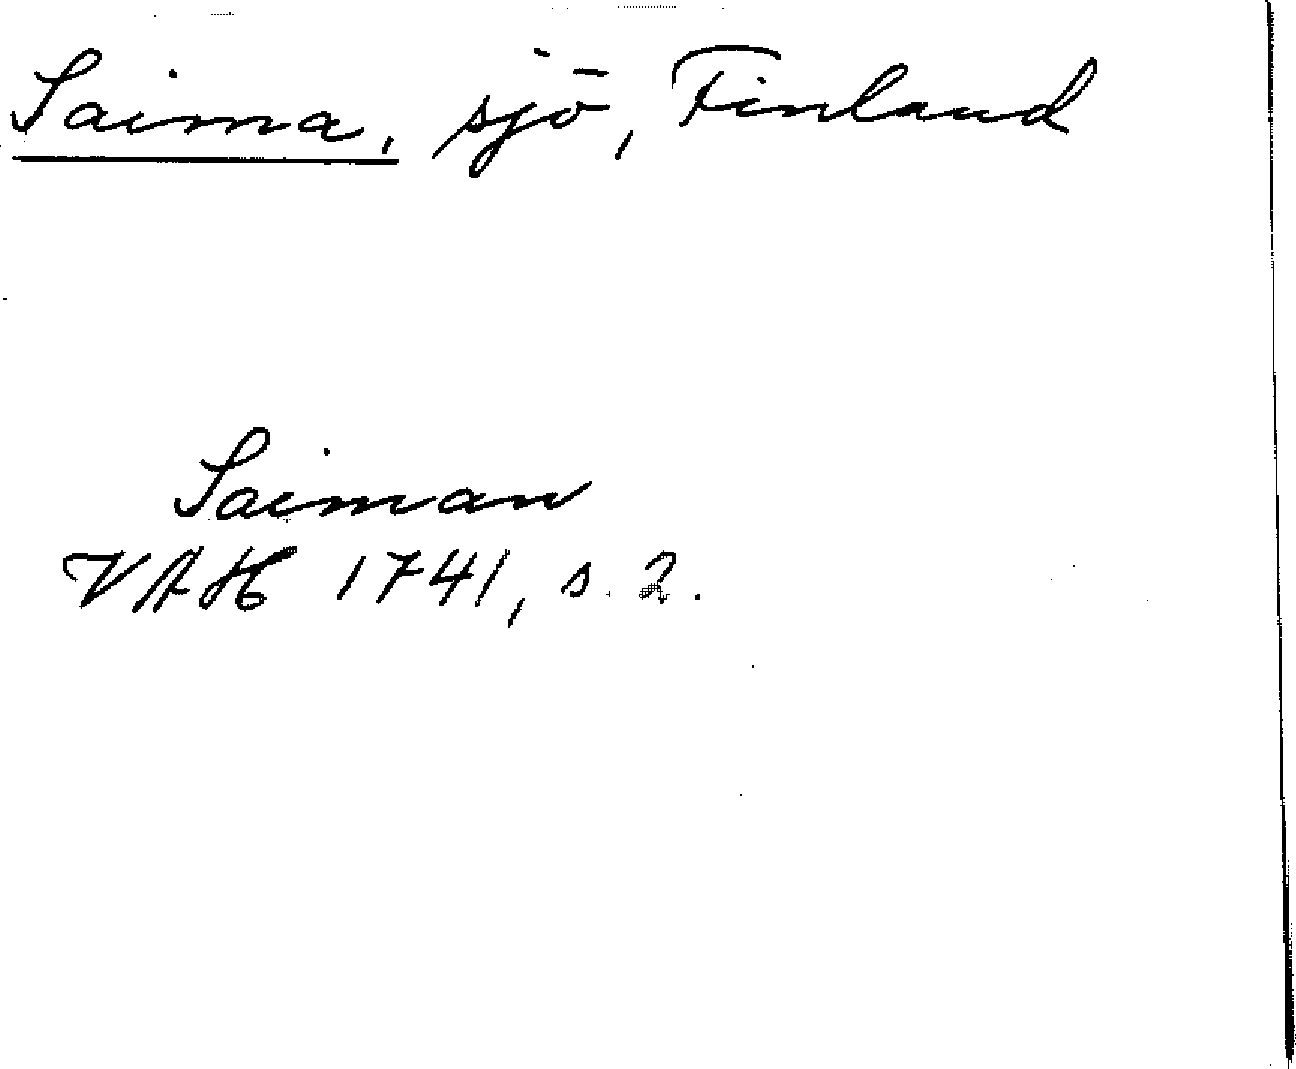 Saima, sjö, Finland
Saiman
VAH 1741, s. 2.